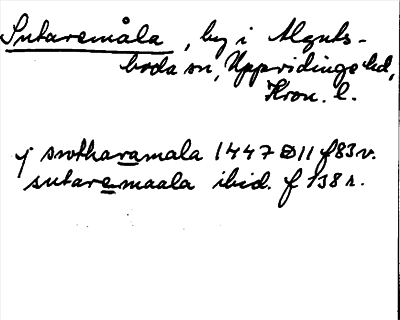 Sutaremåla, by i Alguts-
boda sn, Uppvidinge hd,
Kron. l.
j swtharamala 1447 D 11 f 83 v.
sutaremaala ibid. f 138 r.